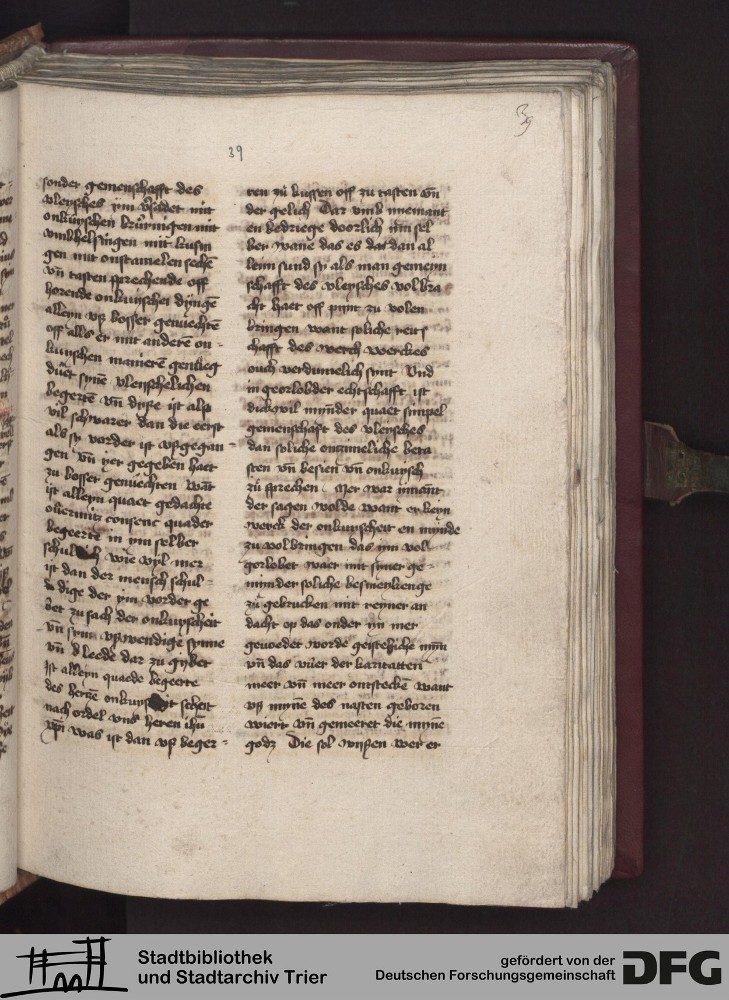 39
39
sonder gemenschafft des
vleysches ym vbadet mit
onkuyschen brürmgen mit
vmbhelsingen mit kussin
gen mit onstamelen sechē
vn̄ tasten sprechende off
horende onkuyschei dyngē
alleyn vß bosser genuechtē
off alls er mit anderē on-
kuyschen manierē genlieg
duet synē vlenschelichen
begertē vn̄ dyße ist alß
vil schwarer dan die eerst
als sy vorder ist vßgegan-
gen vn̄ yer gegeben haet
zu bosser genuechten wāt
ist alleyn quaet gedachte
ouermitz consent quader
begeertē in ym selber
schul h wie vyl mer
ist dan der mensch schul-
dige der ym vorder ge
bet zu sach der onkuyscheit
vn̄ synē vßwendige synne
vn̄ d leede dar zu gybet
Ist alleyn quaede begeerte
des hertzē onkuys t scheit
nach ordel vnß heren ihū
xp̄i was ist dan vß beger-
ten zü kussen off zu tasten vn̄
der gelich Dar vmb niemant
en bedriege doorlich ym sel
ber wane das es dat dan al
leyn sund sy als man gemeyn
schafft des vleysches volbra
cht haet off pynt zu volen
bringen want soliche reits
chafft des werch werckes
ouch verdumelich synt Vnd
in georlobder echtschafft ist
dickwil mynder quaet simpel
gemeinschafft des vleysches
dan soliche onzimeliche beta
sten vn̄ besien vn̄ onkuysch
zü sprechen Mer war ymāt
der sagen wolde want er keyn
werck der onkuyscheit en mynde
zu volbringen das ym vol
georlobet waer mit syner ge-
mynder soliche besmenkenge
zü gebrucken mit reyner an
dacht op das onder yn mer
gevoedet worde geistelyiche myn
vn̄ das vuer der karitatten
meer vn̄ meer ontsteckē want
vß mynē des nasten geboren
wiert vn̄ gemeeret die mynē
godz Die sol wyssen wer er
Stadtbibliothek
und Stadtarchiv Trier
gefördert von der
Deutschen Forschungsgemeinschaft
DFG